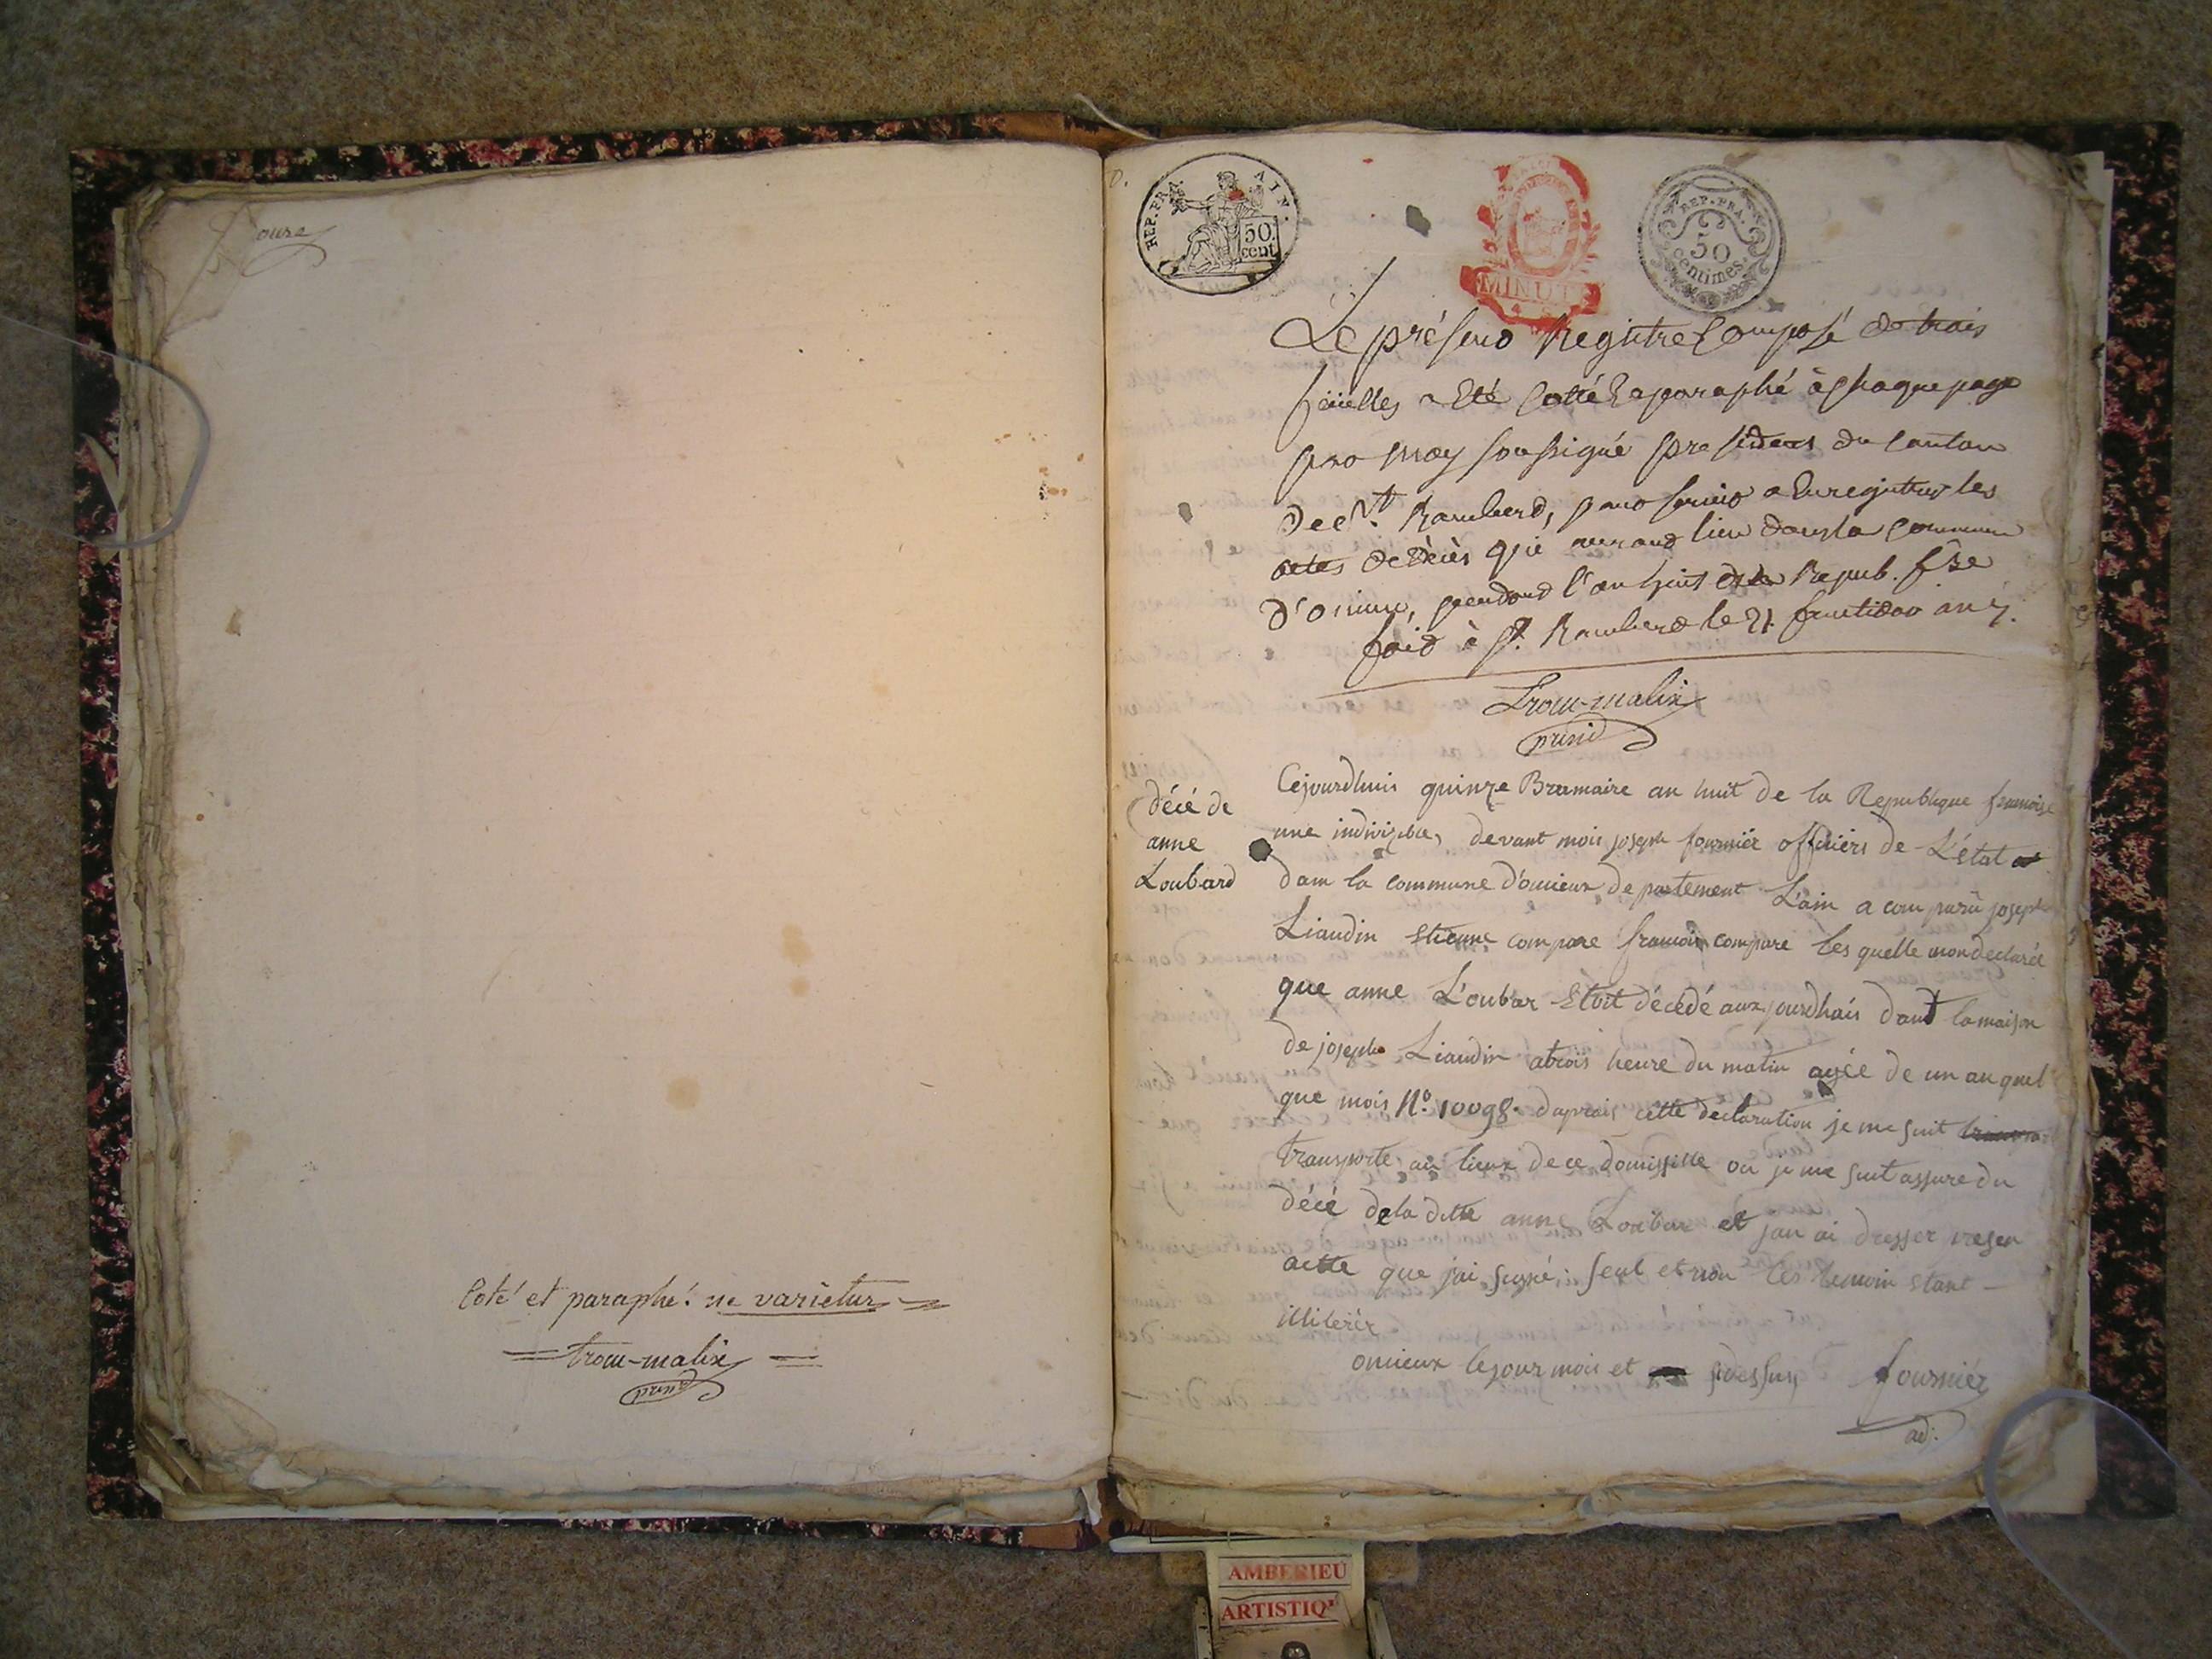 Coté et paraphé: ne varietur
trocu-malix
presid
REP. FRA.
AIN.
50
cent
MINUT
REP. FRA.
50
centimes.
Le présend Registre Composé de trois
feüilles a Eté Cotté Eparaphé à Chaque page
par moy soussigné president du Canton
de St. Ramberd, pour servir a Enregistrer les
actes de décès qui aurond lieu dans la Commune
d'oncieux, pendend l'an huit de la Repub. fse
faid à St. Ramberd le 21 fructidor an 7.
trocu-malix
presid
décé de
anne
Loubard
Cejourdhuis quinze Brumaire an huit de la Republique francoise
une indivizible, devant mois joseph fournièr officièrs de L'état
dans la commune d'oncieux departement L'ain a comparü joseph
Liaudin Etienne compare francois compare les quelle mondeclaréé
que anne L'oubar Etoit décédé aux jourdhuis dant la maison
de joseph Liaudin atrois heure du matin agée de un an quel
que mois No. 10098. daprais cette declaration je me suit
transporte au lieux de ce domissille ou je me suit assure du
décé dela ditte anne Loubar et jan ai dresser
actte que jai signé: seul et non les temoin etant
illiterér
oncieux le jour mois et sidessus, fournièr
ad:
AMBERIEU
ARTISTIQ'